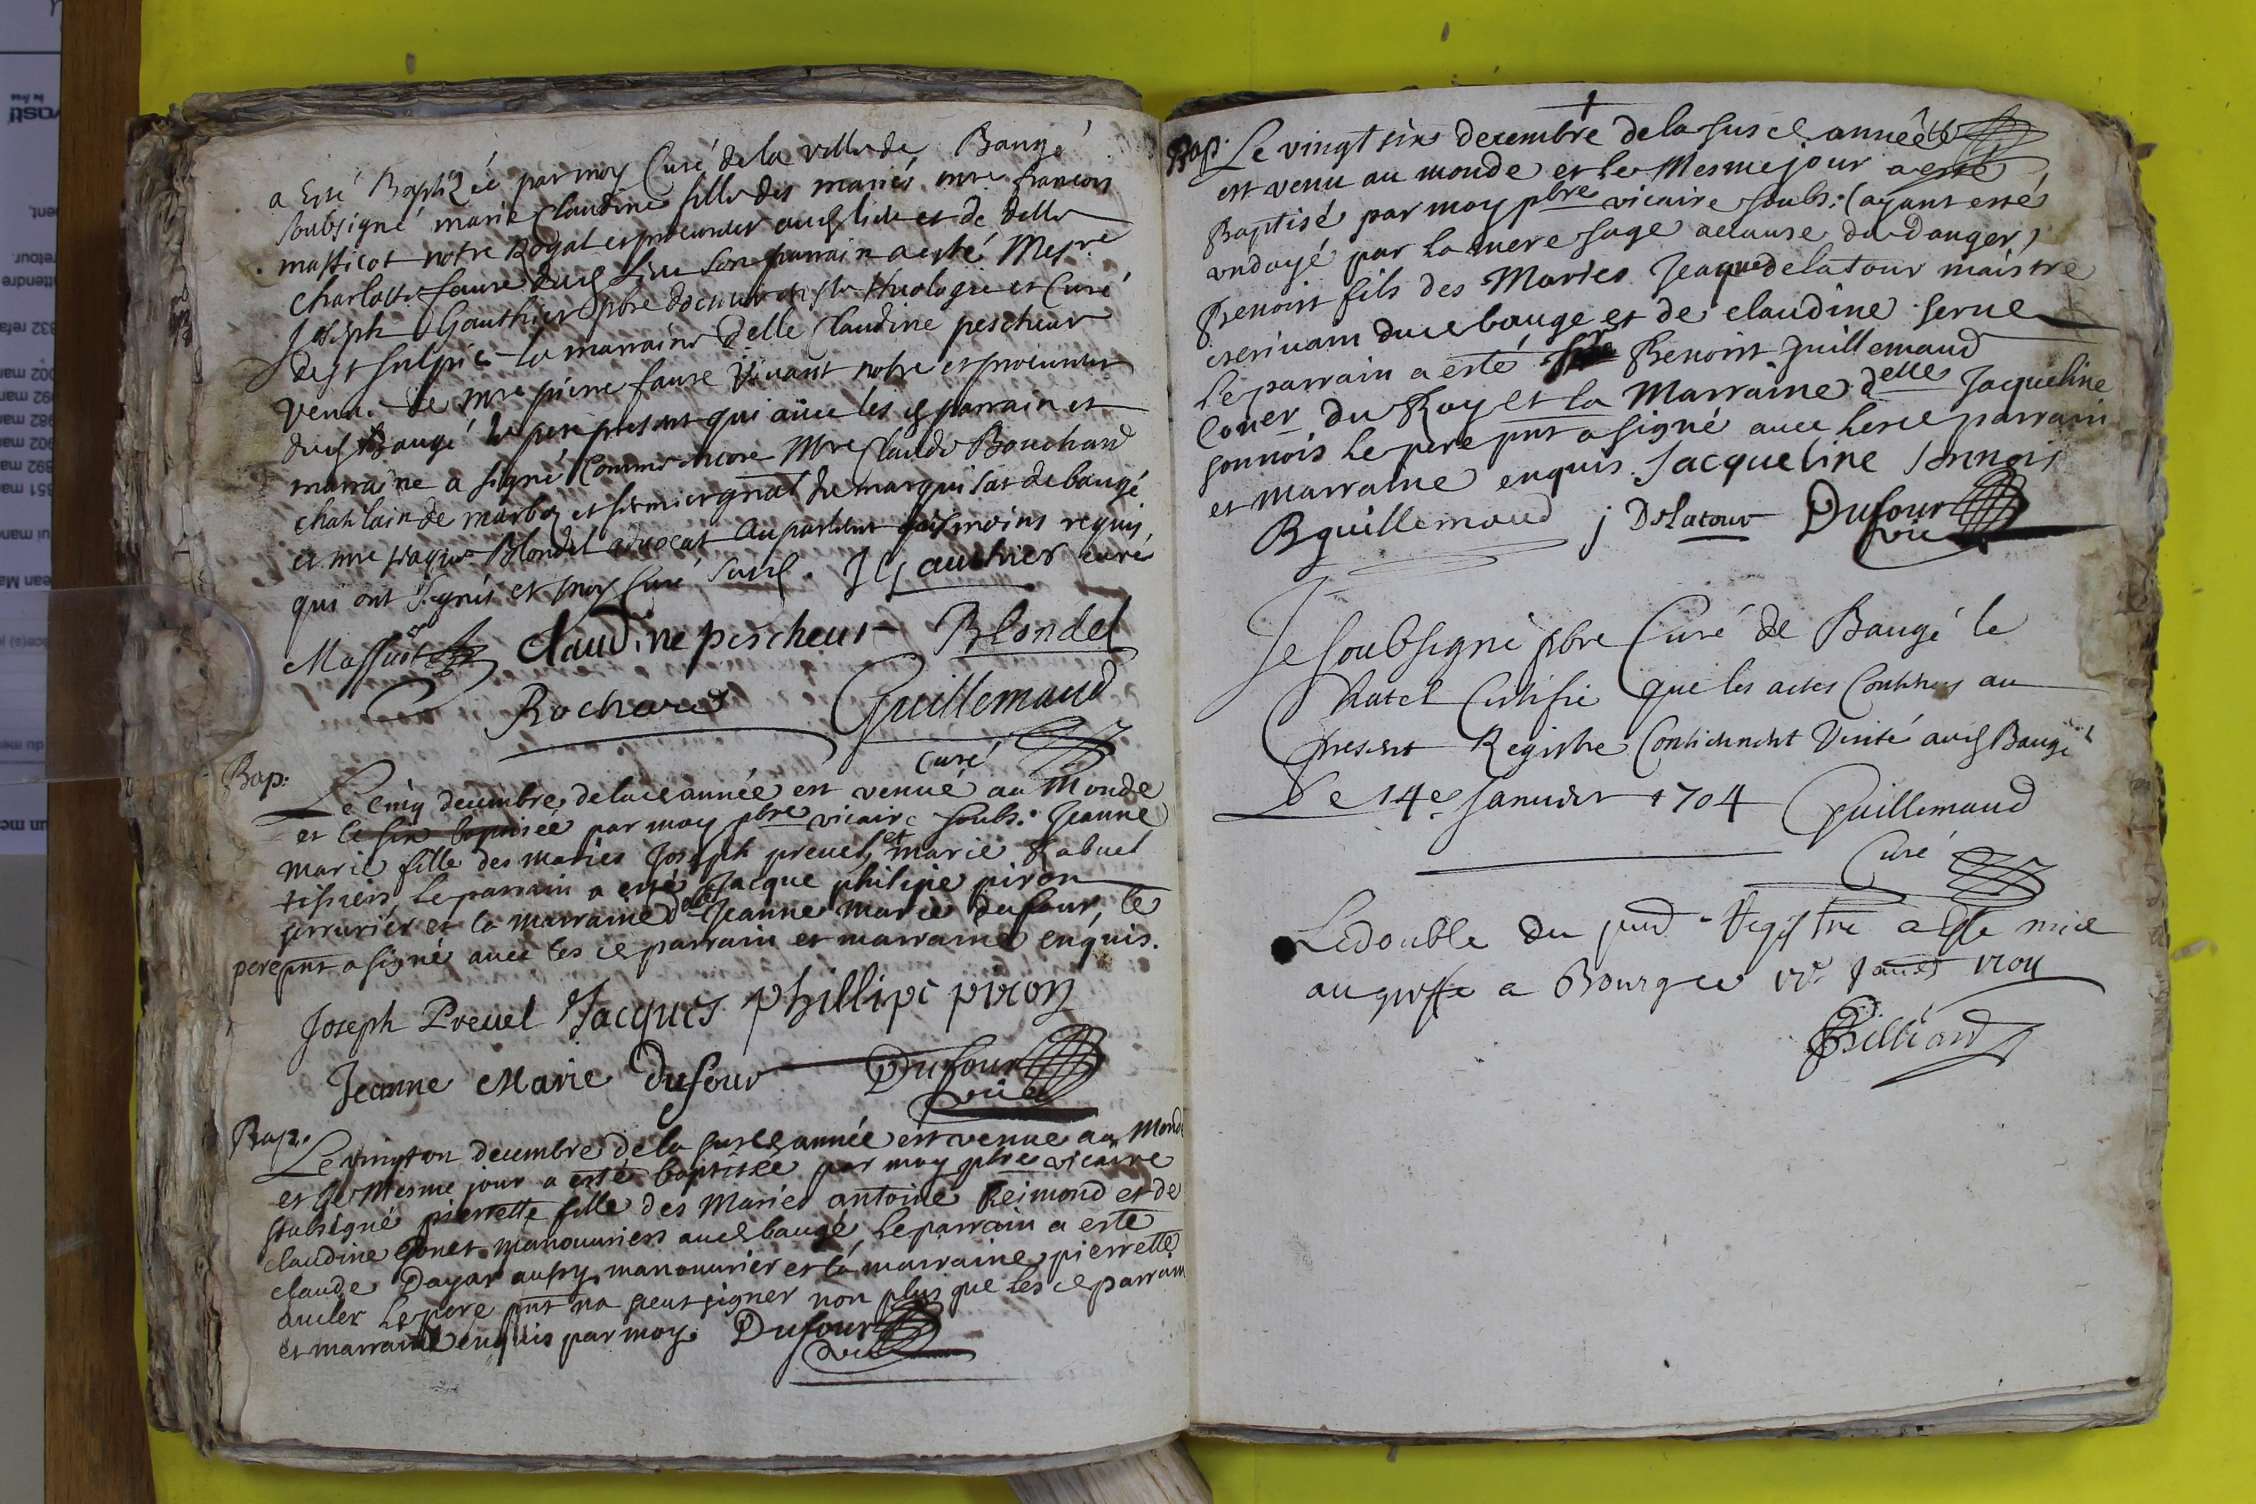 a esté Baptizée par moy Curé de la ville de Baugé
soubsigné marie Claudine fille des mariés mre francois
massicot notre Royal et procureur audt lieu et de delle
charlotte faure dudt lieu son parrain a esté Messre
Joseph Gauthier pbre docteur en ste theologie et Curé
de st sulpic la marraine delle Claudine pescheur
veuve de mre pierre faure vivant notre et procureur
dudt Baugé le pere present qui avec les ds parrain et
marraine a signé Comme encore Mre Claude Bouchard
chatelain de marboz et fermier gnal du marquisat de baugé
et mre Blondel advocat au parlement requis
qui ont signés et moy Curé susd. J Gauthier curé
Massicot Claudine pescheur Blondel
Bochard Guillemaud
Curé
Bap: Le cinq decembre de lad année est venüe au Monde
et le six baptisée par moy pbre vicaire soubs: Jeanne
Marie fille des maries Joseph prevel et marie Rabuel
tissiers, Le parrain a esté Jacque philipe piron
serrurier et la marraine delle Jeanne Marie dufour, le
pere pnt a signé avec les d parrain et marraine enquis.
Joseph Prevel Jacques phillipe piron
Jeanne Marie dufour Dufour
vic
Bap. Le vingt un decembre de la susd année est venue au Monde
et le Mesme jour a esté baptisée par moy pbre vicaire
soubsigné pierrette fille des Mariés antoine Reimond et de
claudine Gonet manouvriers audt baugé, Le parrain a esté
claude Dayar aussy manouvrier et la marraine pierrette
aucler Le pere pnt na sceut signer non plus que les d parrain
et marraine enquis par moy. Dufour
vic
Bap. Le vingt six decembre de la susd année
est venu au monde et le Mesme jour a esté
Baptisé par moy pbre vicaire soubs: (ayant esté
ondoyé par la mere sage a cause du danger)
Benoist fils des Maries Jeaque delatour maistre
escrivain dud bauge et de claudine serve
Le parrain a esté Sr Benoist guillemaud
Coner du Roy et la Marraine delle Jaqueline
sonnois Le pere pnt a signé avec lesd parrain
et marraine enquis. Jacqueline Sonnois
B guillemaud j Delatour Dufour
vic
Je soubsigné pbre Curé de Baugé le
Chatel Certifie que les actes Contenus au
present Registre Contiennent Verité audt Baugé
Le 14e Janvier 1704 Guillemaud
Curé
Le double du pnd Registre a este mis
au greffe a Bourg ce Janer 1704
Billiard